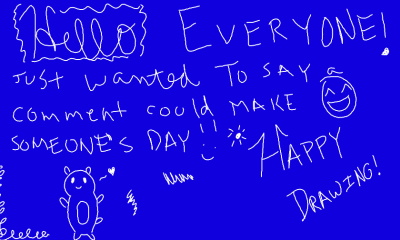 Hello EVERYONE!
Just wanted To SAY a
comment could MAKE
SOMEONE'S DAY!!
HAPPY
DRAWING!